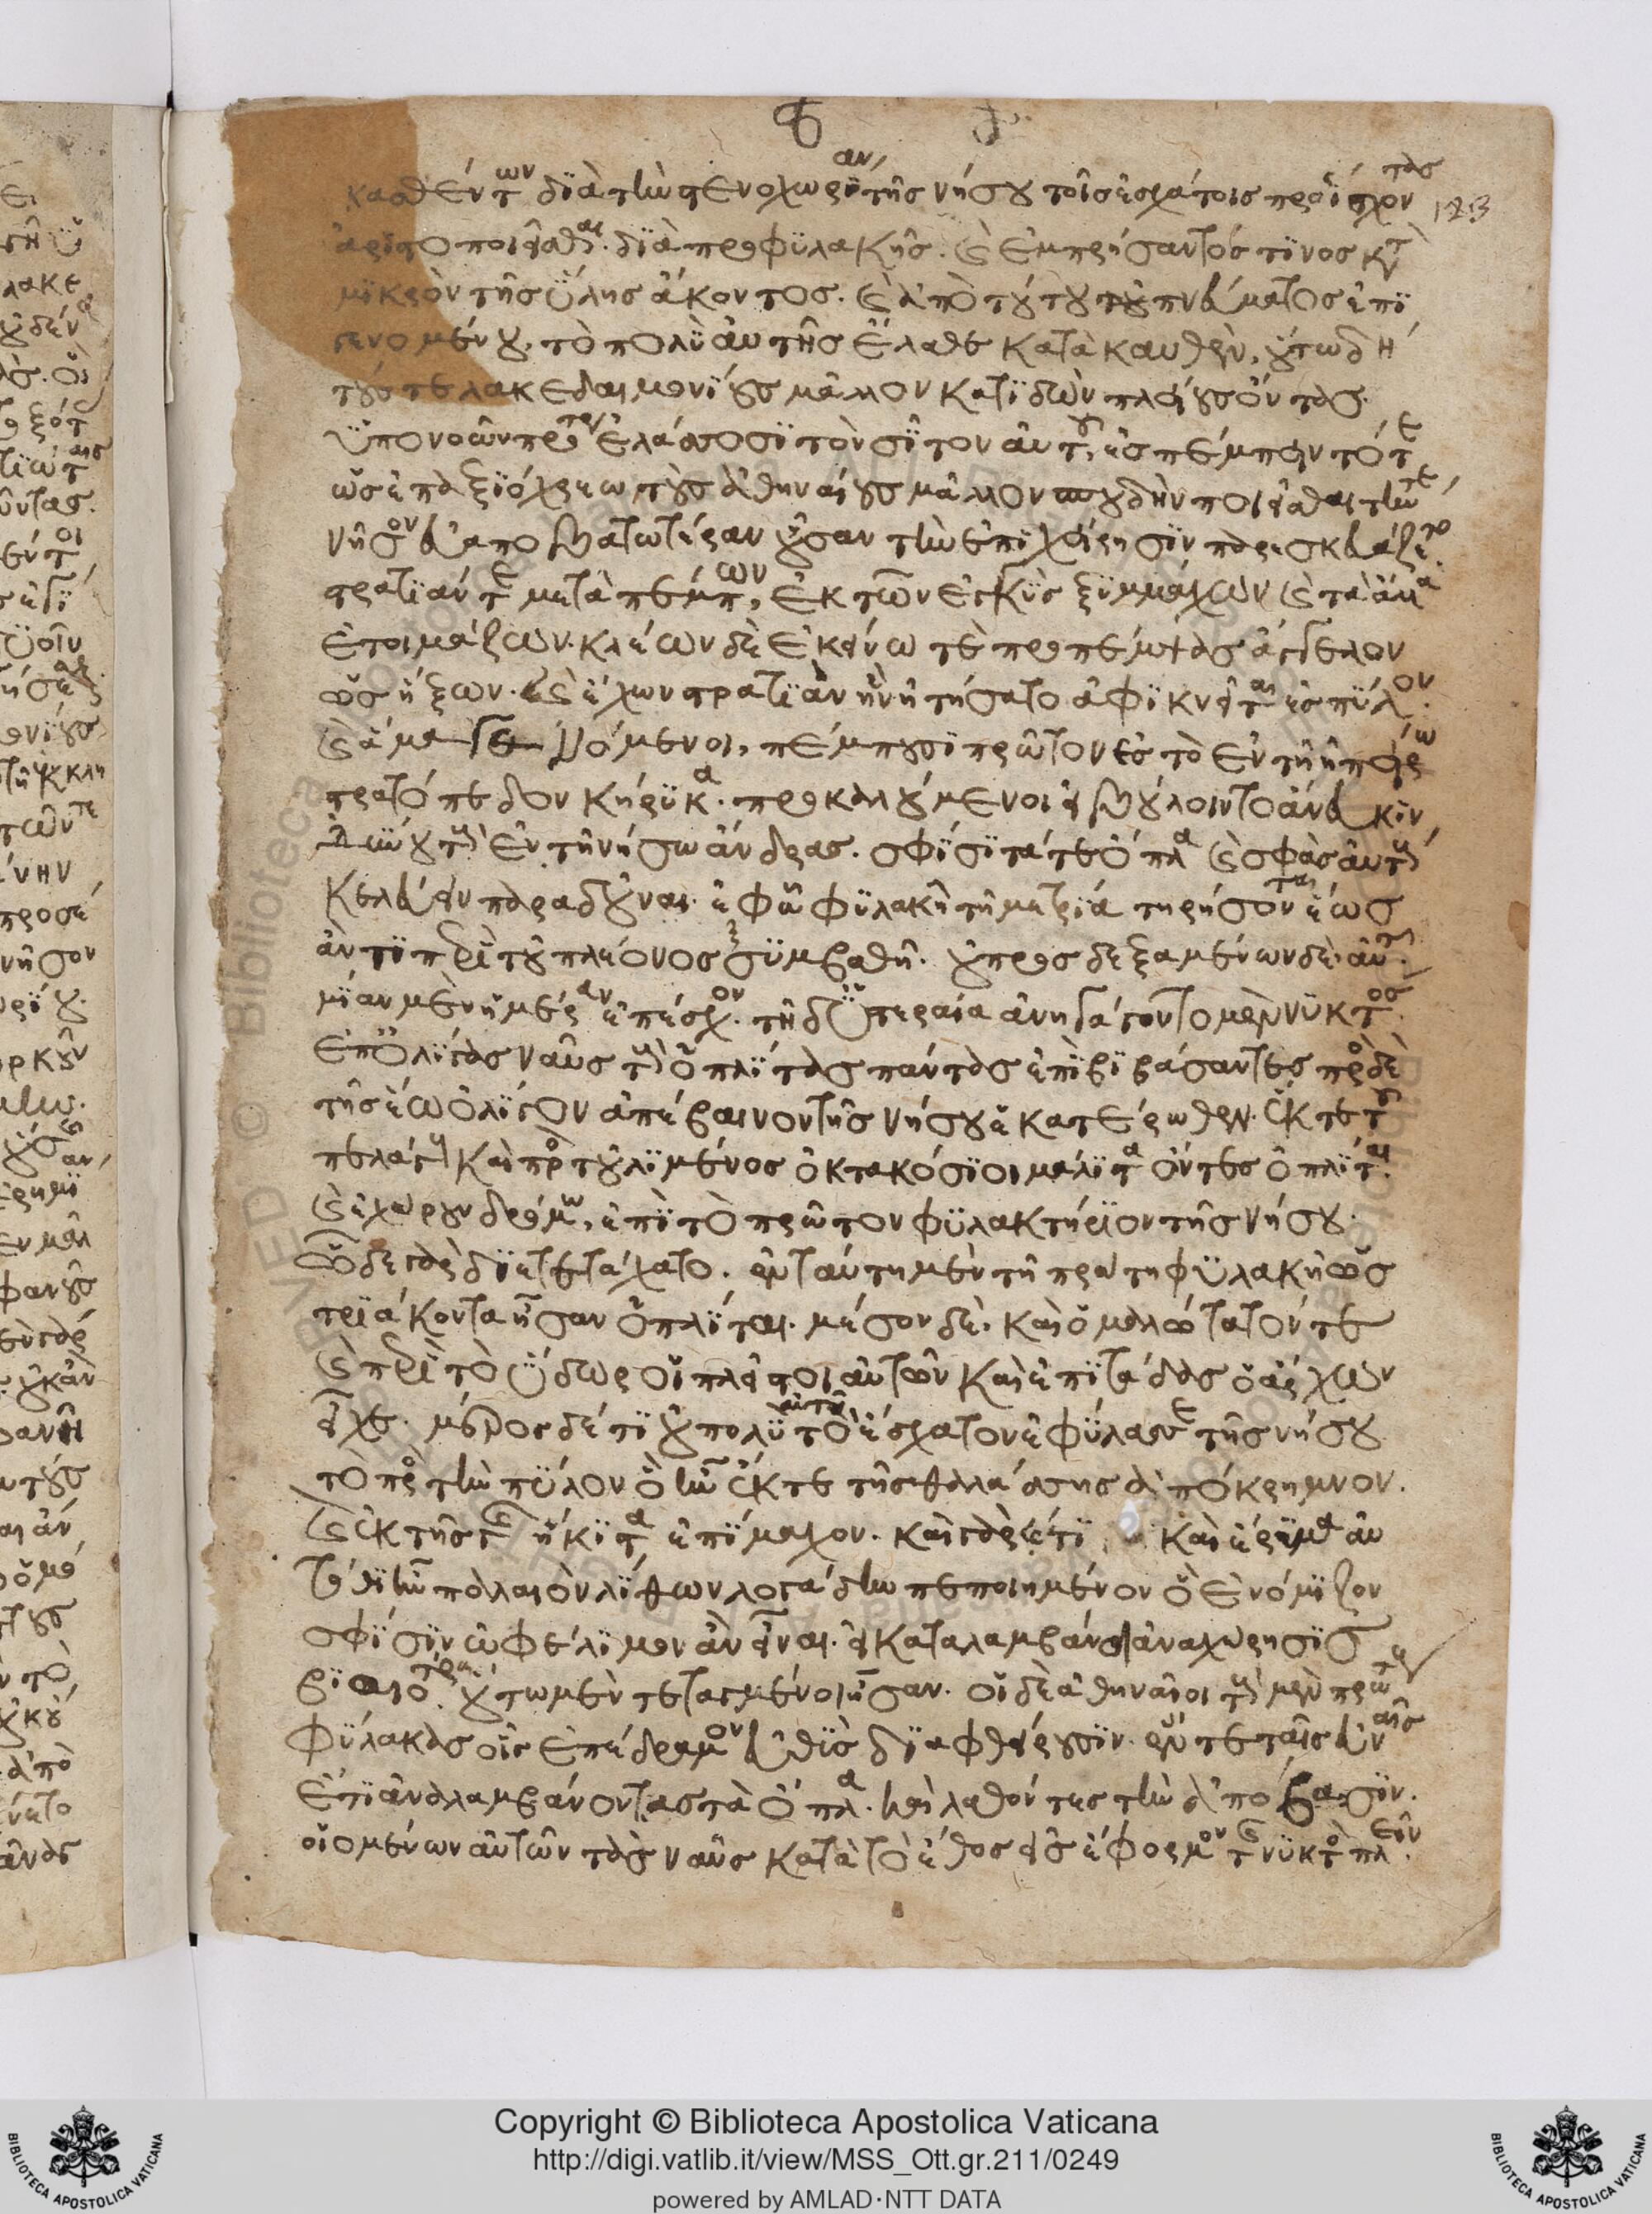 κασθέντων διὰ τὴν στενοχωρίαν τῆς νήσου τοῖς ἐσχάτοις προσίσχοντας
ἀριστοποιεῖσθαι. διὰ προφϋλακῆς. καὶ ἐμπρήσαντός τϊνος κατὰ
μϊκρὸν τῆς ὕλης ἄκοντος. καὶ ἀπὸ τούτου πνεύματος ἐπϊ
γενομένου, τὸ πολὺ αὐτῆς ἔλαθε κατὰκαυθέν, οὕτω δὴ
τούς τε λακεδαιμονίους μᾶλλον κατϊδὼν πλείους ὄντας.
ὑπονοῶν πρότερον ἐλάσσοσϊ τὸν σῖτον αὐτοῦ, ἐσπέμπειν τότε
ὡς ἐπαξϊόχρεω τοὺς ἀθηναίους μᾶλλον σπουδὴν ποιεῖσθαι τήν τε
νῆσον εὐαποβατωτέραν οὖσαν τὴν ἐπϊχείρησϊν παρεσκευάζετο
στρατϊάν τε μεταπέμπων, ἐκ τῶν ἐγγὺς ξϋμμάχων καὶ τὰ ἄλλα
ἑτοιμάζων. κλέων δὲ ἐκείνω τὲ προπέμψας ἄγγελον
ὡς ἥξων. καὶ ἔχων στρατϊὰν ἣν ἠτήσατο ἀφϊκνεῖται ἐς πύλον.
καὶ ἅμα γενόμενοι, πέμπουσϊ πρῶτον ἐς τὸ ἐν τῆ ἠπείρω
στρατόπεδον κήρϋκα. προκαλούμενοι εἰ βούλοιντο ἄνευ κϊν
δύνου τοὺς ἐν τῆ νήσω ἄνδρας. σφίσϊ τά τε ὅπλα καὶ σφᾶς αὐτοὺς
κελεύειν παραδοῦναι. ἐφ ὧ φϋλακῆ τῆ μετρϊά τηρήσονται ἕως
ἄν τϊ περὶ τοῦ πλέονος ξϋμβαθῆ. οὐ προσδεξαμένων δὲ αὐτῶν.
μϊαν μὲν ἡμέραν ἐπέσχον. τῆ δ ὑστεραία ἀνηγάγοντο μὲν νϋκτὸς.
ἐπ ὀλϊγας ναῦς τοὺς ὁπλϊτας πάντας ἐπϊβϊβάσαντες πρὸ δὲ
τῆς ἕω ὀλίγον ἀπέβαινον τῆς νήσου ἑκατέρωθεν. ἔκ τε τοῦ
πελάγους καὶ πρὸς τοῦ λϊμένος ὀκτακόσϊοι μάλϊστα ὄντες ὁπλῖται.
καὶ ἐχώρουν δρόμω, ἐπϊ τὸ πρῶτον φϋλακτήρϊον τῆς νήσου.
ὧδε γὰρ δϊετετάχατο. ἐν ταύτη μὲν τῆ πρώτη φϋλακῆ ὡς
τρϊάκοντα ἦσαν ὁπλῖται. μέσον δὲ. καὶ ὁμαλώτατόν τε
καὶ περὶ τὸ ὕδωρ οἱ πλεῖστοι αὐτῶν καὶ ἐπϊτάδας ὁ ἄρχων
εἶχε. μέρος δέ τϊ οὐ πολὺ αὐτὸ τὸ ἔσχατον ἐφύλασσε τῆς νήσου
τὸ πρὸς τὴν πύλον ὃ ἦν ἔκ τε τῆς θαλάσσης ἀπόκρημνον.
καὶ ἐκ τῆς γῆς ἥκϊστα ἐπϊμαχον. καὶ γάρ τϊ καὶ ἔρυμα αὐ
τόθϊ ἦν παλαιὸν λϊθων λογάδην πεποιημένον ὃ ἐνόμϊζον
σφϊσϊν ὠφέλϊμον ἂν εἶναι. εἰ καταλαμβάνοι ἀναχώρησϊς
βϊαιοτέρα. οὕτω μὲν τεταγμένοι ἦσαν. οἱ δὲ ἀθηναῖοι τοὺς μὲν πρώτους
φύλακας οἷς ἐπέδραμον εὐθὺς δϊαφθείρουσϊν. ἔν τε ταῖς εὐναῖς
ἔτϊ ἀναλαμβάνοντας τὰ ὅπλα. καὶ λαθόντες τὴν ἀπόβασϊν.
οἰομένων αὐτῶν τὰς ναῦς κατὰ τὸ ἔθος ἐς ἔφορμον τῆς νϋκτὸς πλεῖν.
Copyright © Biblioteca Apostolica Vaticana
http://digi.vatlib.it/view/MSS_Ott.gr.211/0249
powered by AMLAD·NTT DATA